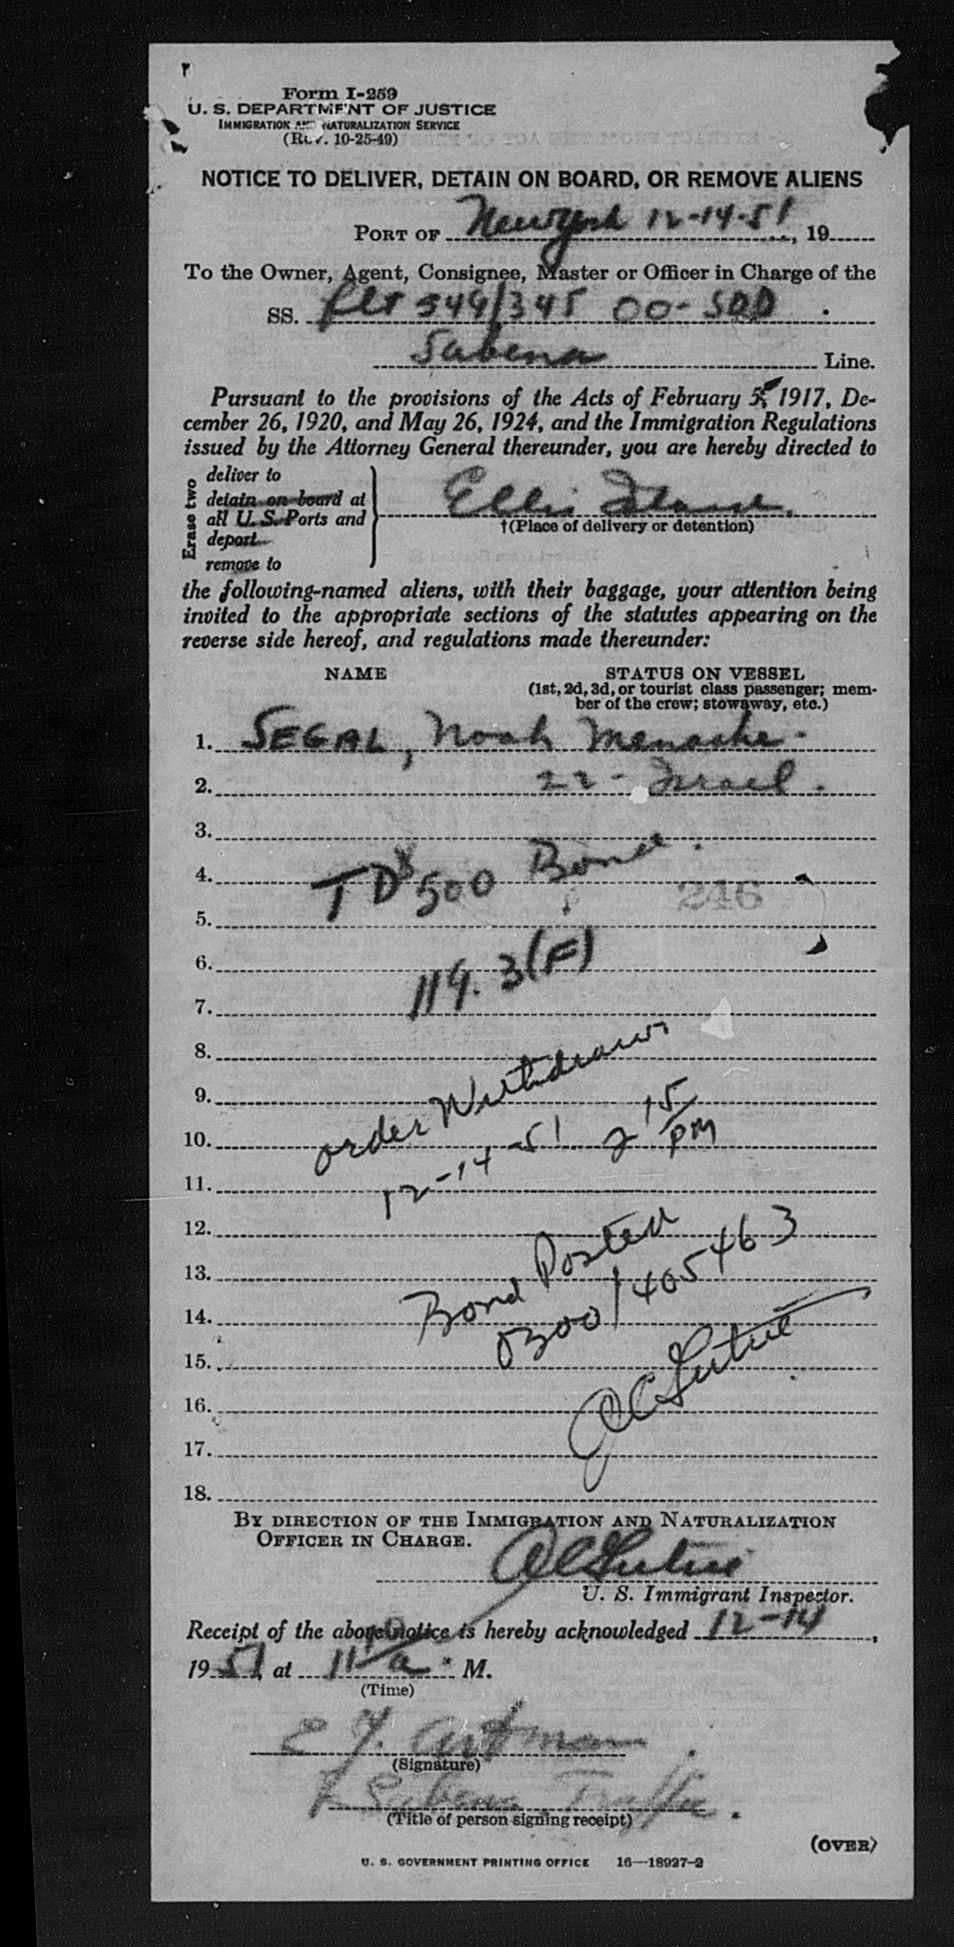 Form I-259
U. S. DEPARTMENT OF JUSTICE
IMMIGRATION AND NATURALIZATION SERVICE
(Rev. 10-25-49)
NOTICE TO DELIVER, DETAIN ON BOARD, OR REMOVE ALIENS
PORT OF New York 12-14-51, 19
To the Owner, Agent, Consignee, Master or Officer in Charge of the
SS. flt 549/345 OO-SDD
Sabena Line.
Pursuant to the provisions of the Acts of February 5, 1917, De-
cember 26, 1920, and May 26, 1924, and the Immigration Regulations
issued by the Attorney General thereunder, you are hereby directed to
Erase two
deliver to
detain on board at
all U. S. Ports and
deport
remove to
Ellis Island.
†(Place of delivery or detention)
the following-named aliens, with their baggage, your attention being
invited to the appropriate sections of the statutes appearing on the
reverse side hereof, and regulations made thereunder:
NAME STATUS ON VESSEL
(1st, 2d, 3d, or tourist class passenger; mem-
ber of the crew; stowaway, etc.)
1. SEGAL, Noah Menashe.
2. 22 - Israel.
3.
4. TD $500 Bond.
246
5.
6. 119.3(F)
7.
8.
9. order Withdrawn
10. 12-14-51 2 15/PM
11.
12.
13. Bond Posted
14. 0300/405463
15.
16.
17.
18.
BY DIRECTION OF THE IMMIGRATION AND NATURALIZATION
OFFICER IN CHARGE.
U. S. Immigrant Inspector.
Receipt of the above notice is hereby acknowledged 12-14,
1951, at 11 a. M.
(Time)
E. J. Artman
(Signature)
Sabena Traffic.
(Title of person signing receipt)
(OVER)
U. S. GOVERNMENT PRINTING OFFICE 16—18927-2